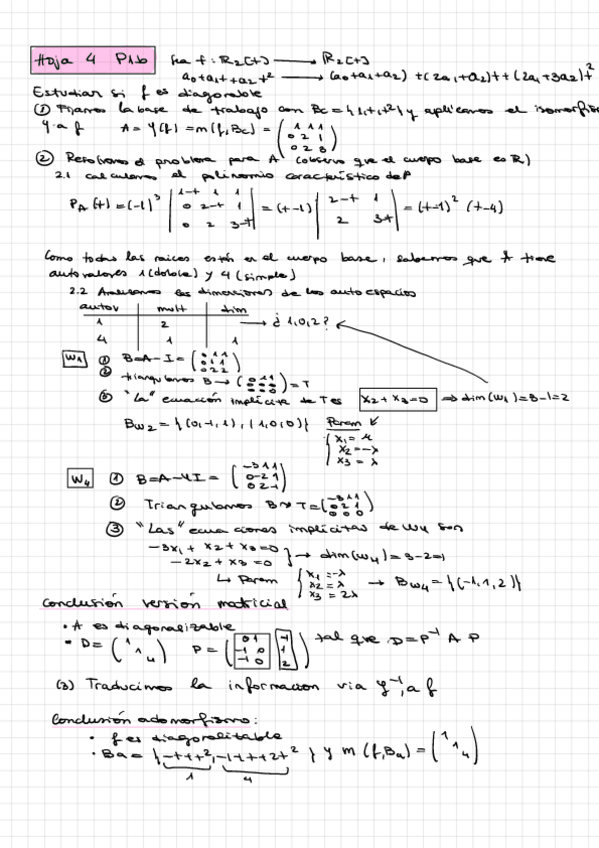 Hoja 4 P1b Sea f: R₂[t] ⟶ R₂[t]
a₀+a₁t+a₂t² ⟶ (a₀+a₁+a₂)+(2a₁+a₂)t+(2a₁+3a₂)t²
Estudiar si f es diagonalizable
① Fijamos la base de trabajo con Bc={1,t,t²} y aplicamos el isomorfismo
φ a f A=φ(f)=m(f,Bc)=(1 1 1
0 2 1
0 2 3)
② Resolvemos el problema para A (observo que el cuerpo base es R)
2.1 calculamos el polinomio característico de
P_A(t)=(-1)³ |1-t 1 1
0 2-t 1
0 2 3-t| =(t-1) |2-t 1
2 3-t| =(t-1)² (t-4)
Como todas las raices están en el cuerpo base, sabemos que A tiene
autovalores 1 (doble) y 4 (simple)
2.2 Analizamos las dimensiones de los autoespacios
autov | mult | dim
1 | 2 | → ¿1,0,2?
4 | 1 | 1
W₁ ① B=A-I=(0 1 1
0 1 1
0 2 2)
② triangulamos B→(0 1 1
0 0 0
0 0 0)=T
③ "La" ecuación implícita de T es x₂+x₃=0 ⇒ dim(W₁)=3-1=2
B_W₂={(0,-1,1),(1,0,0)} Param
{x₁=μ
x₂=-λ
x₃=λ
W₄ ① B=A-4I=(-3 1 1
0 -2 1
0 2 -1)
② Triangulamos B→T=(-3 1 1
0 -2 1
0 0 0)
③ "Las" ecuaciones implícitas de W4 son
-3x₁+x₂+x₃=0
-2x₂+x₃=0 } → dim(W₄)=3-2=1
↳ Param {x₁=-λ
x₂=λ
x₃=2λ → B_W₄={(-1,1,2)}
Conclusión versión matricial
• A es diagonalizable
• D=(1
1
4) P=(0 1 -1
-1 0 1
-1 0 2) tal que D=P⁻¹ A P
(3) Traducimos la informacion via φ⁻¹, a f
Conclusión
• f es diagonalizable
• Ba={-t+t², -1+t+2t²} y m(f,Ba)=(1
1
4)
1 4